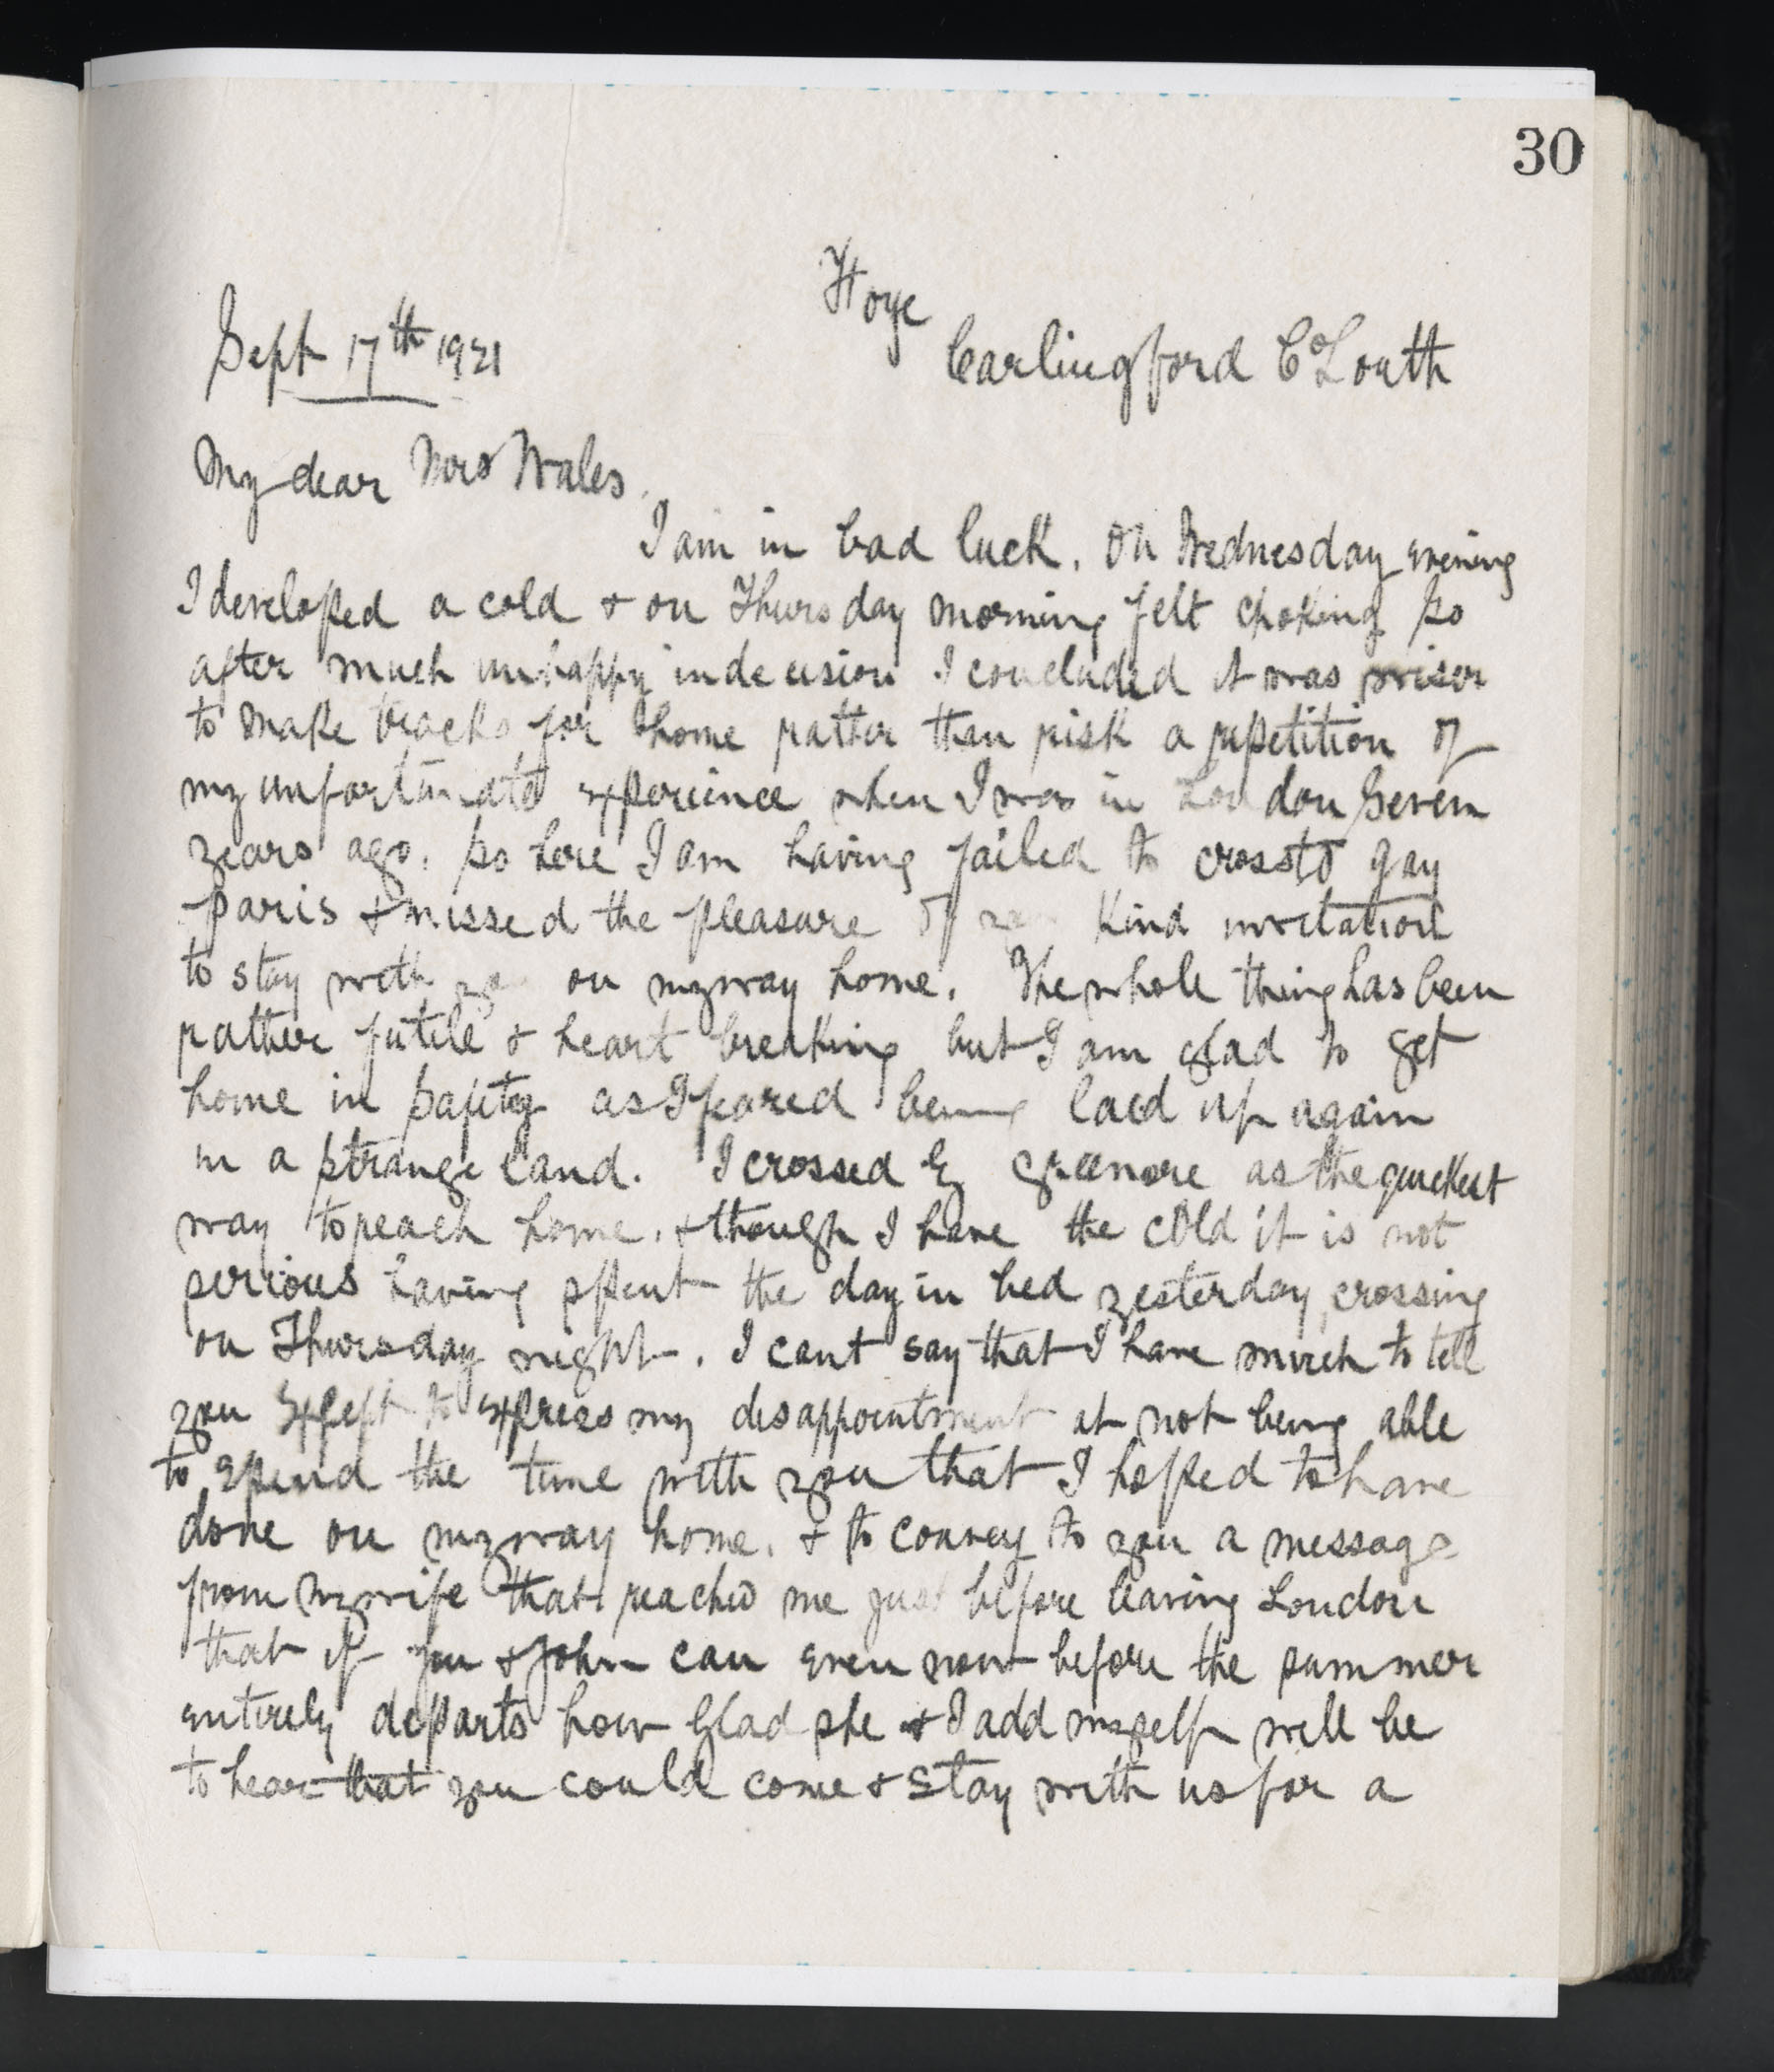 30
Sept 17th 1921
Carlingford Co Louth
My dear Mrs Wales.
I am in bad luck. On Wednesday evening
I developed a cold & on Thursday morning felt choking so
after much unhappy indecision I concluded it was wiser
to make tracks for home rather than risk a repetition of
my unfortunate experience when I was in London seven
years ago. So here I am having failed to cross to gay
Paris & missed the pleasure of kind invitation
to stay with on my way home. The whole thing has been
rather futile & heart breaking but I am glad to get
home in safety as I feared being laid up again
in a strange land. I crossed by Greenore as the quickest
way to reach home. & though I have the cold it is not
serious having spent the day in bed yesterday, crossing
on Thursday night. I cant say that I have much to tell
you except to express my disappointment at not being able
to spend the time with you that I hoped to have
done on my way home. & to convey to you a message
from my wife that reached me just before leaving London
that if you & John can even now before the summer
entirely departs how glad she & I add myself will be
to hear that you could come & stay with us for a